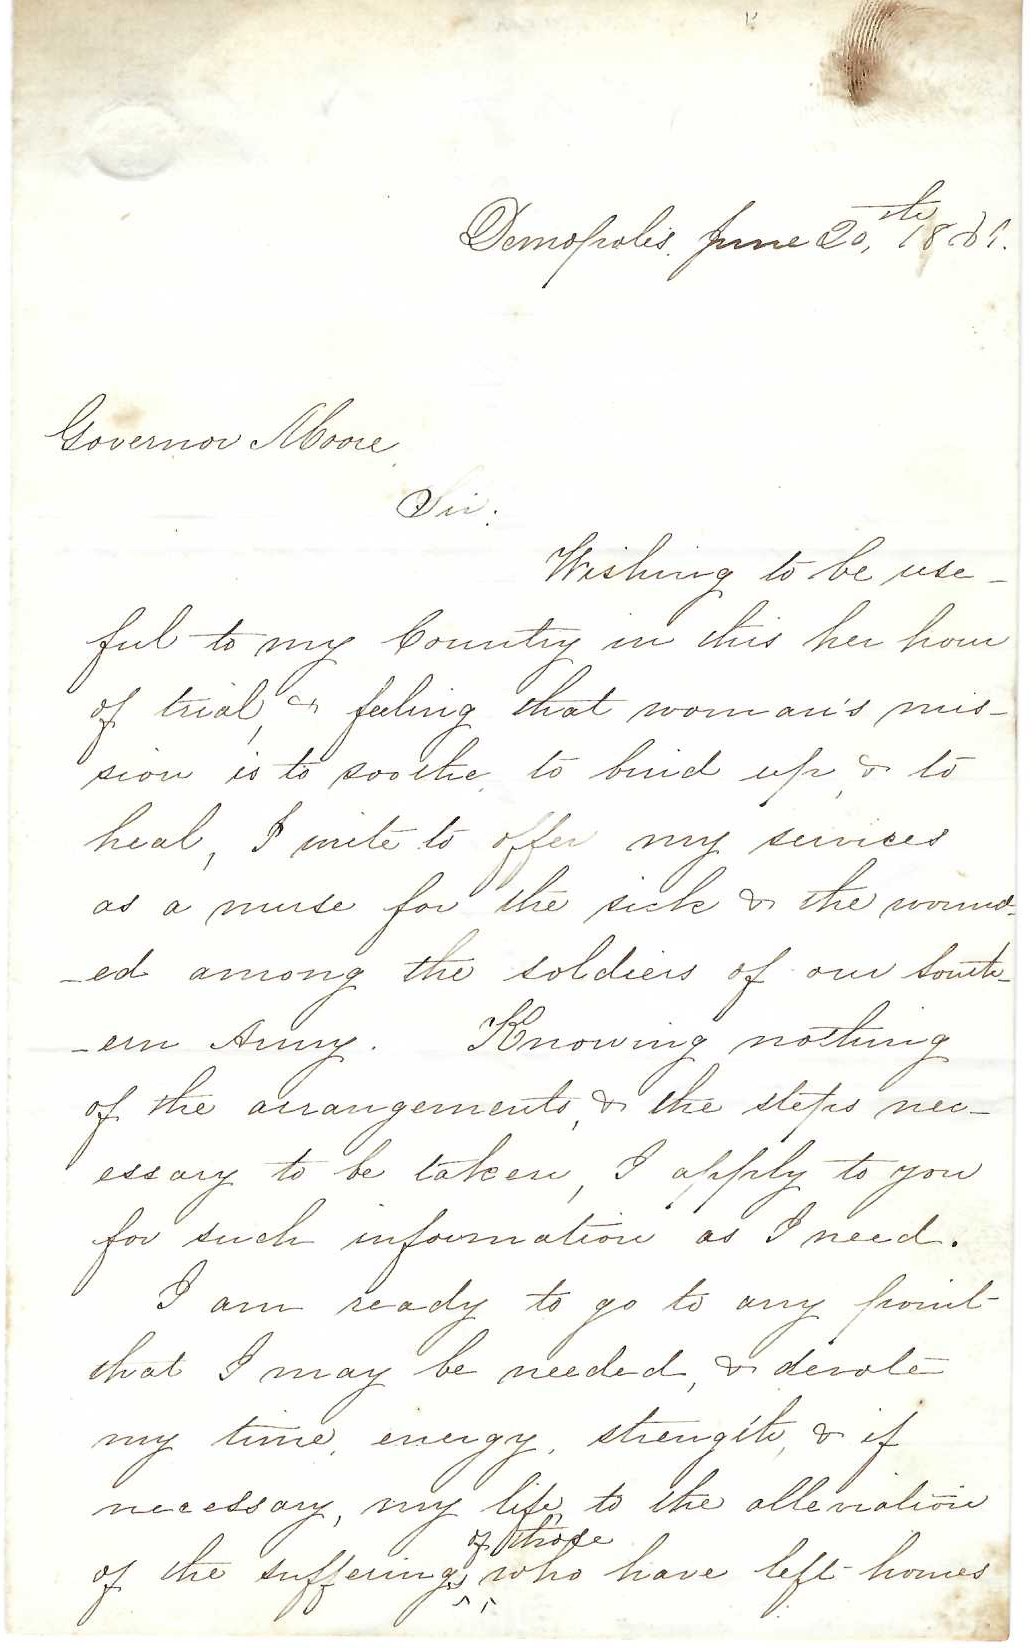 Demopolis. June 20,th 1861.
Governor Moore,
Sir:
Wishing to be use-
ful to my Country in this her hour
of trial, & feeling that woman's mis-
sion is to soothe, to bind up, & to
heal, I write to offer my services
as a nurse for the sick & the wound-
-ed among the soldiers of our South-
-ern Army. Knowing nothing
of the arrangements, & the steps nec-
essary to be taken, I apply to you
for such information as I need.
I am ready to go to any point
that I may be needed, & devote
my time, energy, strength, & if
necessary, my life, to the alleviation
of those
of the sufferings, who have left homes